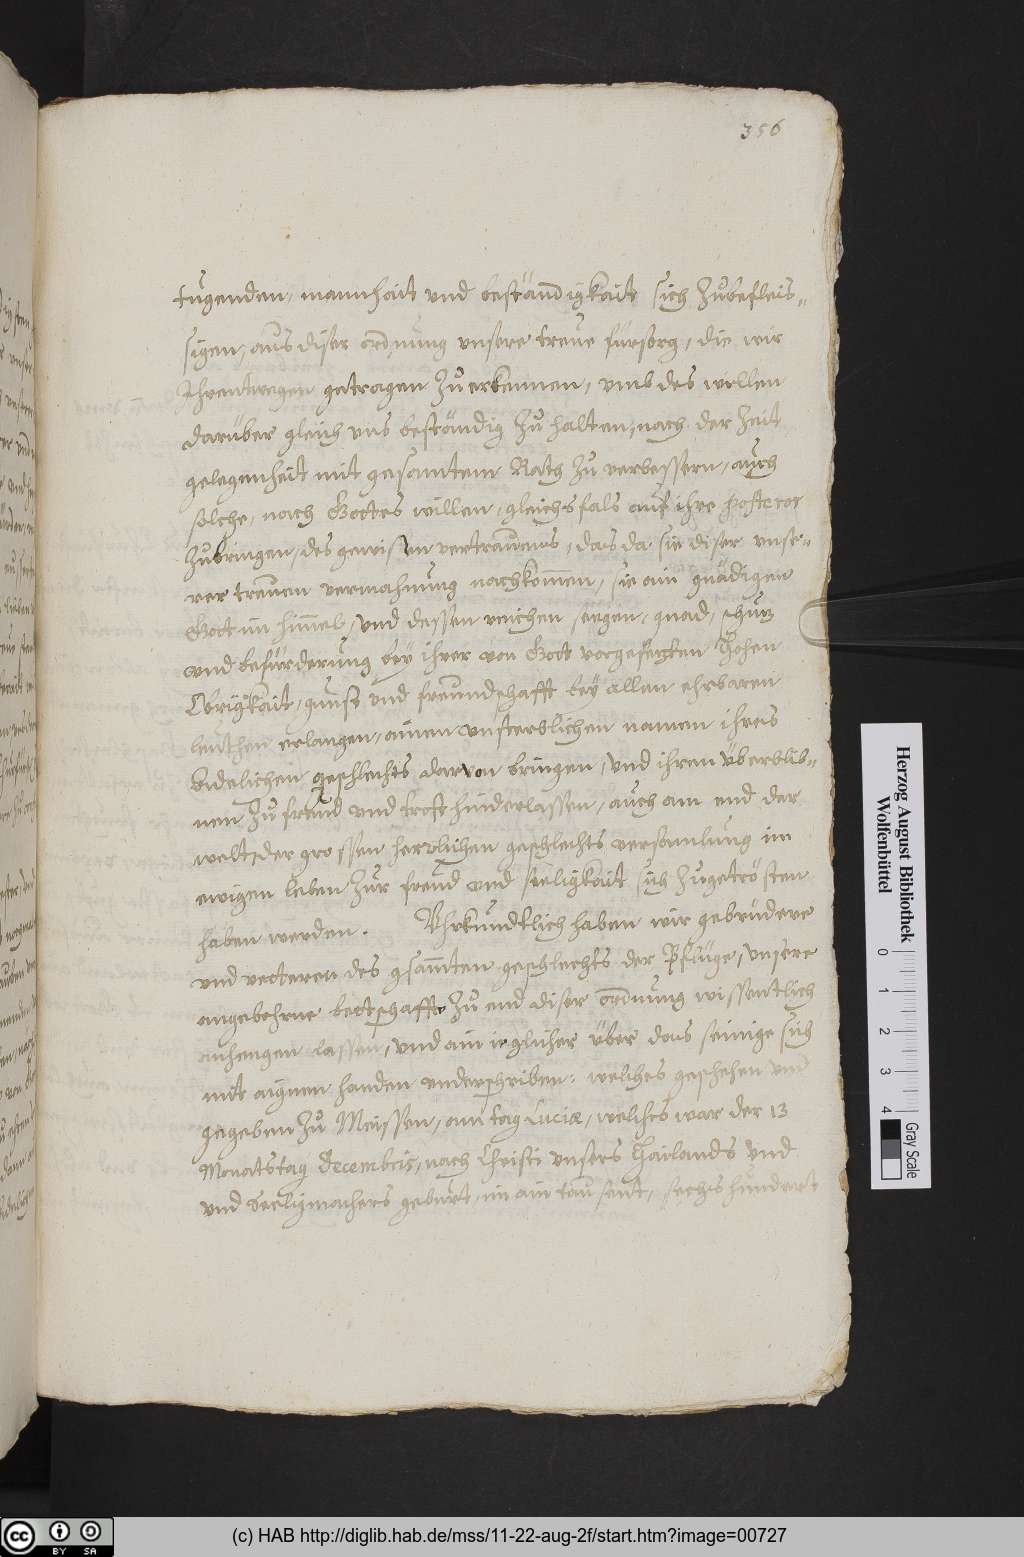 356
tugenden, mannhait und beständigkait sich Zubefleis-
sigen, aus diser ordnung unsere treue fürsorg, die wir
Ihrentwegen getragen Zu erkennen, umb des willen
darüber gleich uns beständig Zu halten, nach der Zeit
gelegenheit mit gesamtem Rath Zu verbessern, auch
solche, nach Gottes willen, gleichsfals auf ihre posteros
Zubringen, des gewissen vertrauens, das da sie diser unse-
rer treuen vermahnung nachkom̄en, sie ain gnädigen
Gott im him̄el, und dessen reichen segen, gnad, schuz
und befürderung bey ihrer von Gott vorgesezten Hohen
Obrigkait, gunst und freundschafft bey allen ehrbaren
leuthen erlangen, ainen unsterblichen namen ihres
adelichen geschlechts darvon bringen, und ihren überblib-
nen Zu freud und trost hinderlassen, auch am end der
welt, der grossen herrlichen geschlechts versamlung im
ewigen leben Zur freud und seeligkait sich Zugetrösten
haben werden. Uhrkundtlich haben wir gebrüdere
und vetteren des gsam̄ten geschlechts der Pflüge, unsere
angebohrne bettschafft Zu end diser ordnung wissentlich
anhengen lassen, und ain ieglicher über das seinige sich
mit aignen handen underschriben. welches geschehen und
gegeben Zu Meissen, am tag Luciæ, welchs war der 13
Monatstag Decembris, nach Christi unsers Hailands und
und Seeligmachers geburt, im ain tausent, sechs hundert
Herzog August Bibliothek
Wolfenbüttel
0 1 2 3 4
Gray Scale
cc BY SA
(c) HAB http://diglib.hab.de/mss/11-22-aug-2f/start.htm?image=00727